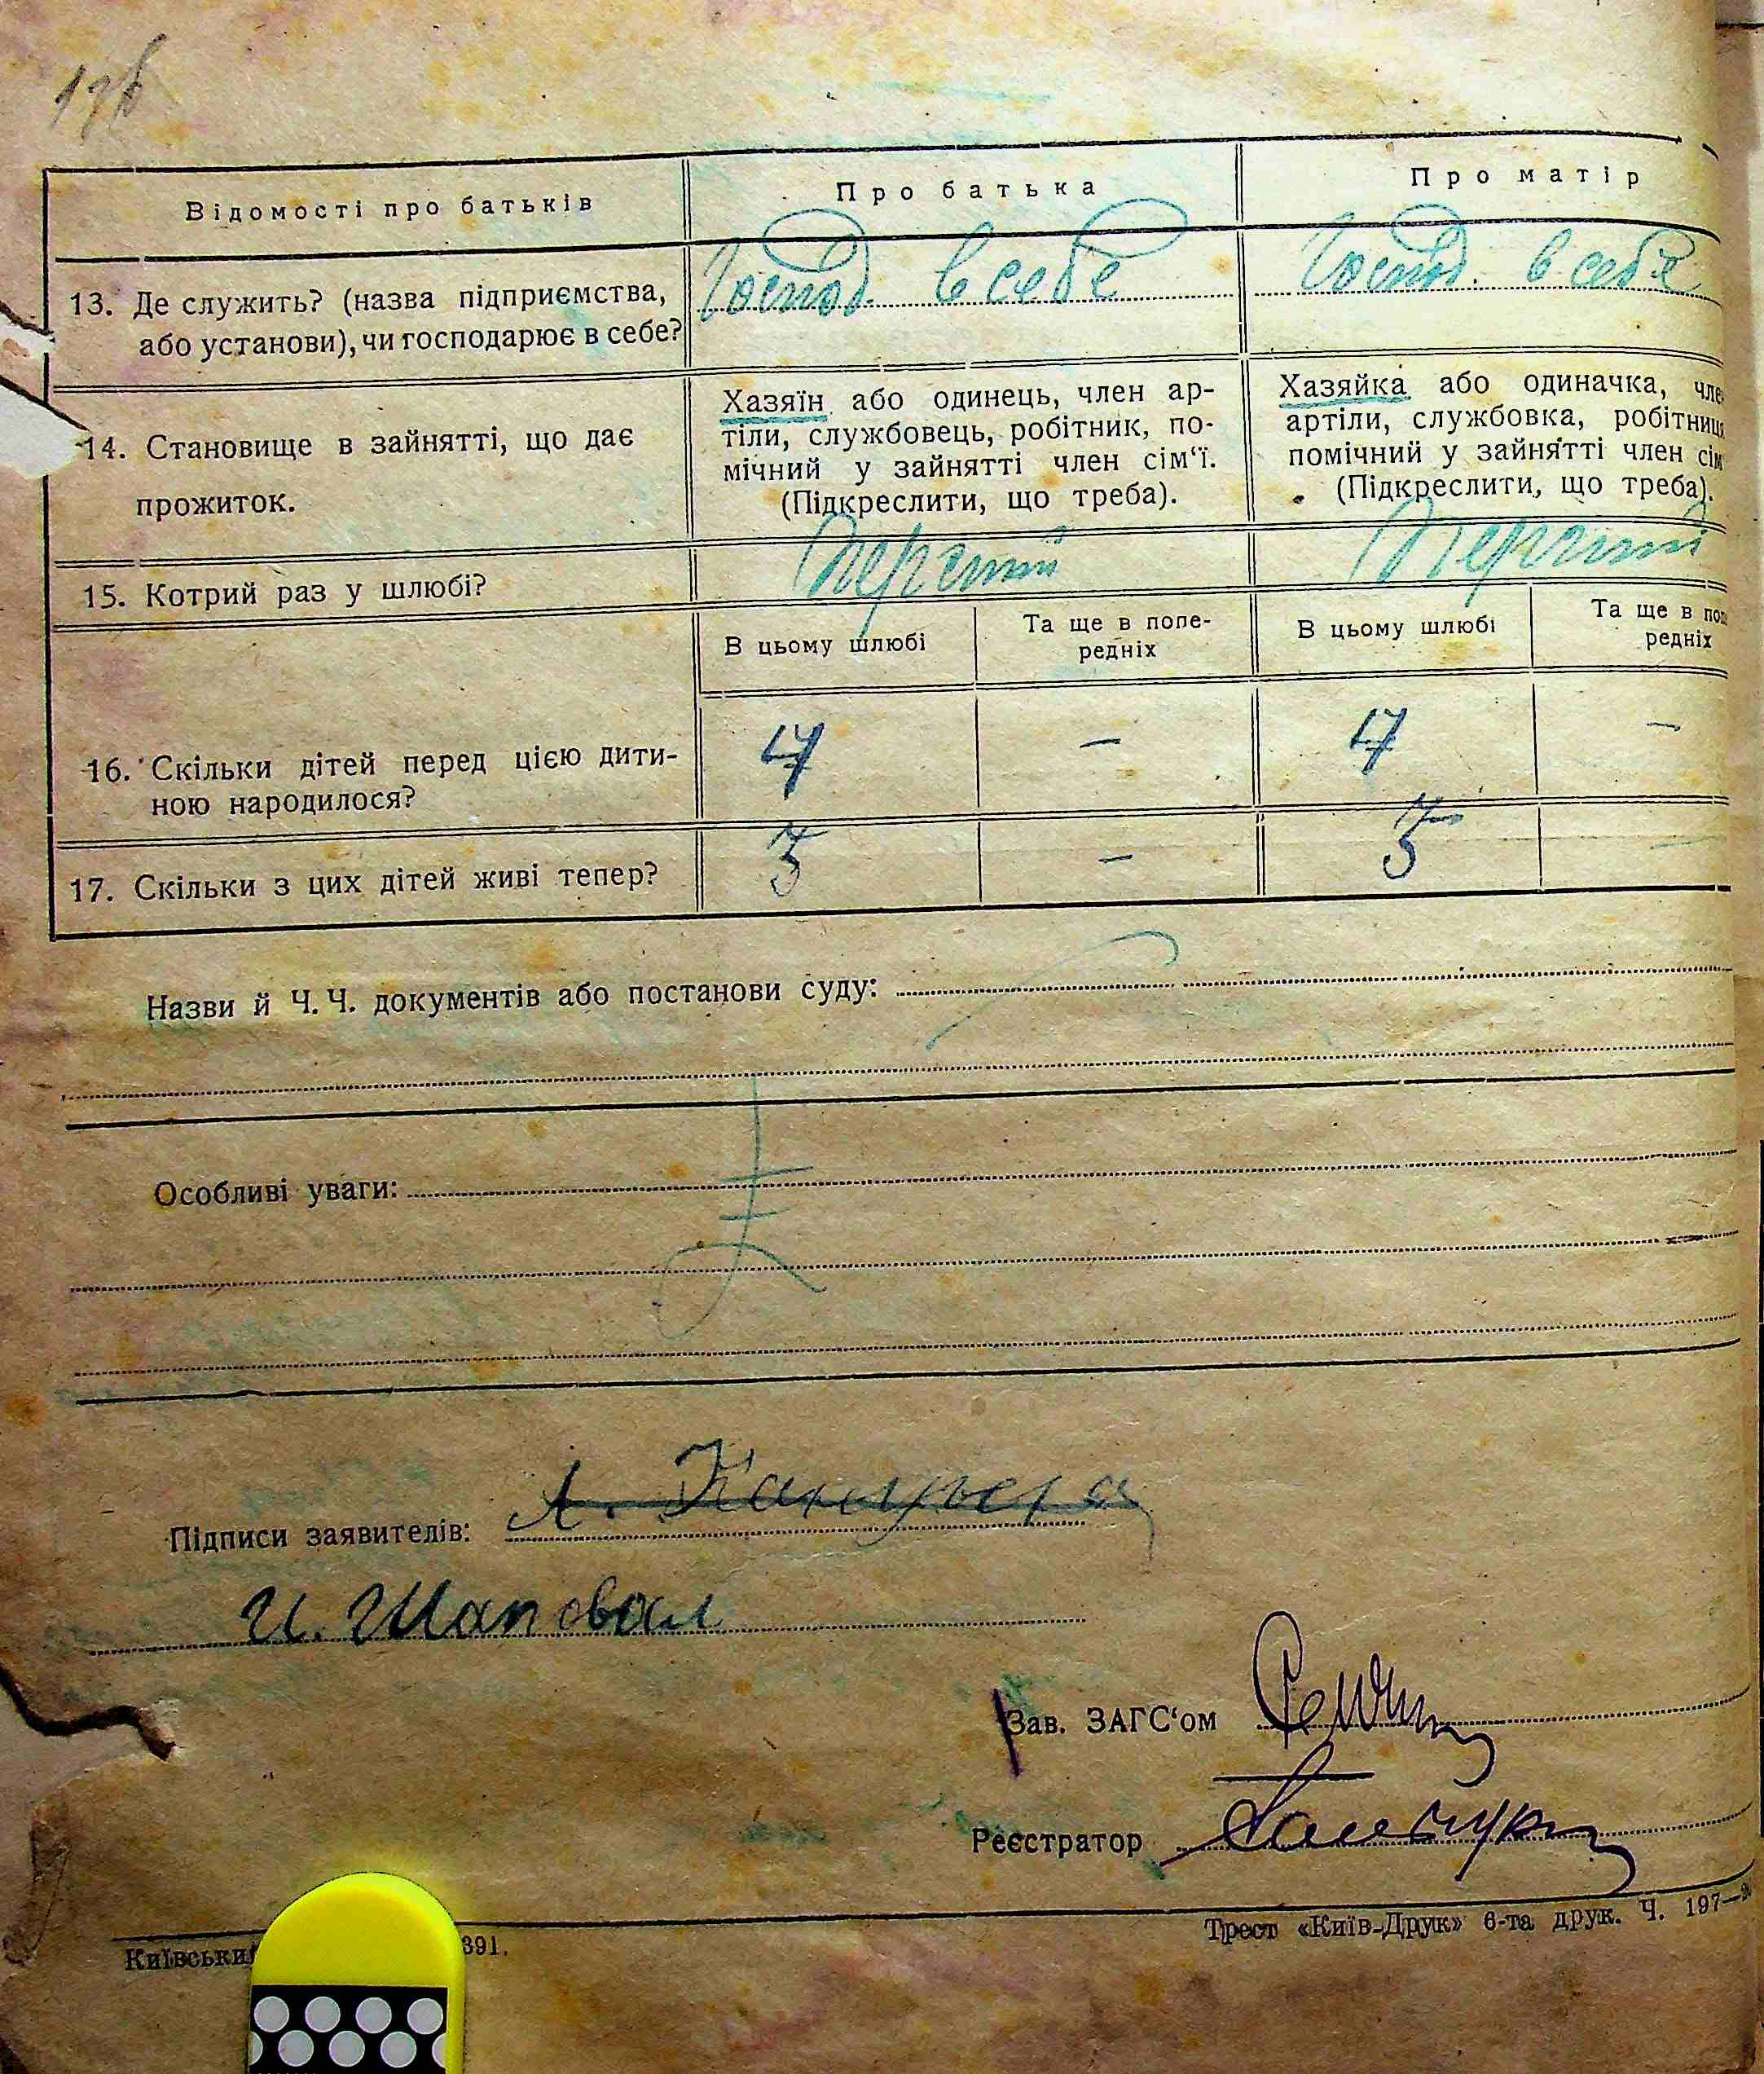 Відомості про батьків
Про батька
Про матір
13. Де служить? (назва підприємства,
або установи), чи господарює в себе?
Господ. в себе
Господ. в себе
14. Становище в зайнятті, що дає
прожиток.
Хазяїн або одинець, член ар-
тіли, службовець, робітник, по-
мічний у зайнятті член сім‘ї.
(Підкреслити, що треба).
Хазяйка або одиначка, чле
артіли, службовка, робітниця
помічний у зайнятті член сім
(Підкреслити, що треба).
15. Котрий раз у шлюбі?
Перший
Перший
В цьому шлюбі
Та ще в попе-
редніх
В цьому шлюбі
Та ще в поп
редніх
16. Скільки дітей перед цією дити-
ною народилося?
4 – 4 –
17. Скільки з цих дітей живі тепер?
3 – 3 –
Назви й Ч. Ч. документів або постанови суду:
Особливі уваги:
Підписи заявителів:
И. Шаповал
Зав. ЗАГС‘ом
Реєстратор
Київськи 391.
Трест «Київ-Друк» 6-та друк. Ч. 197—